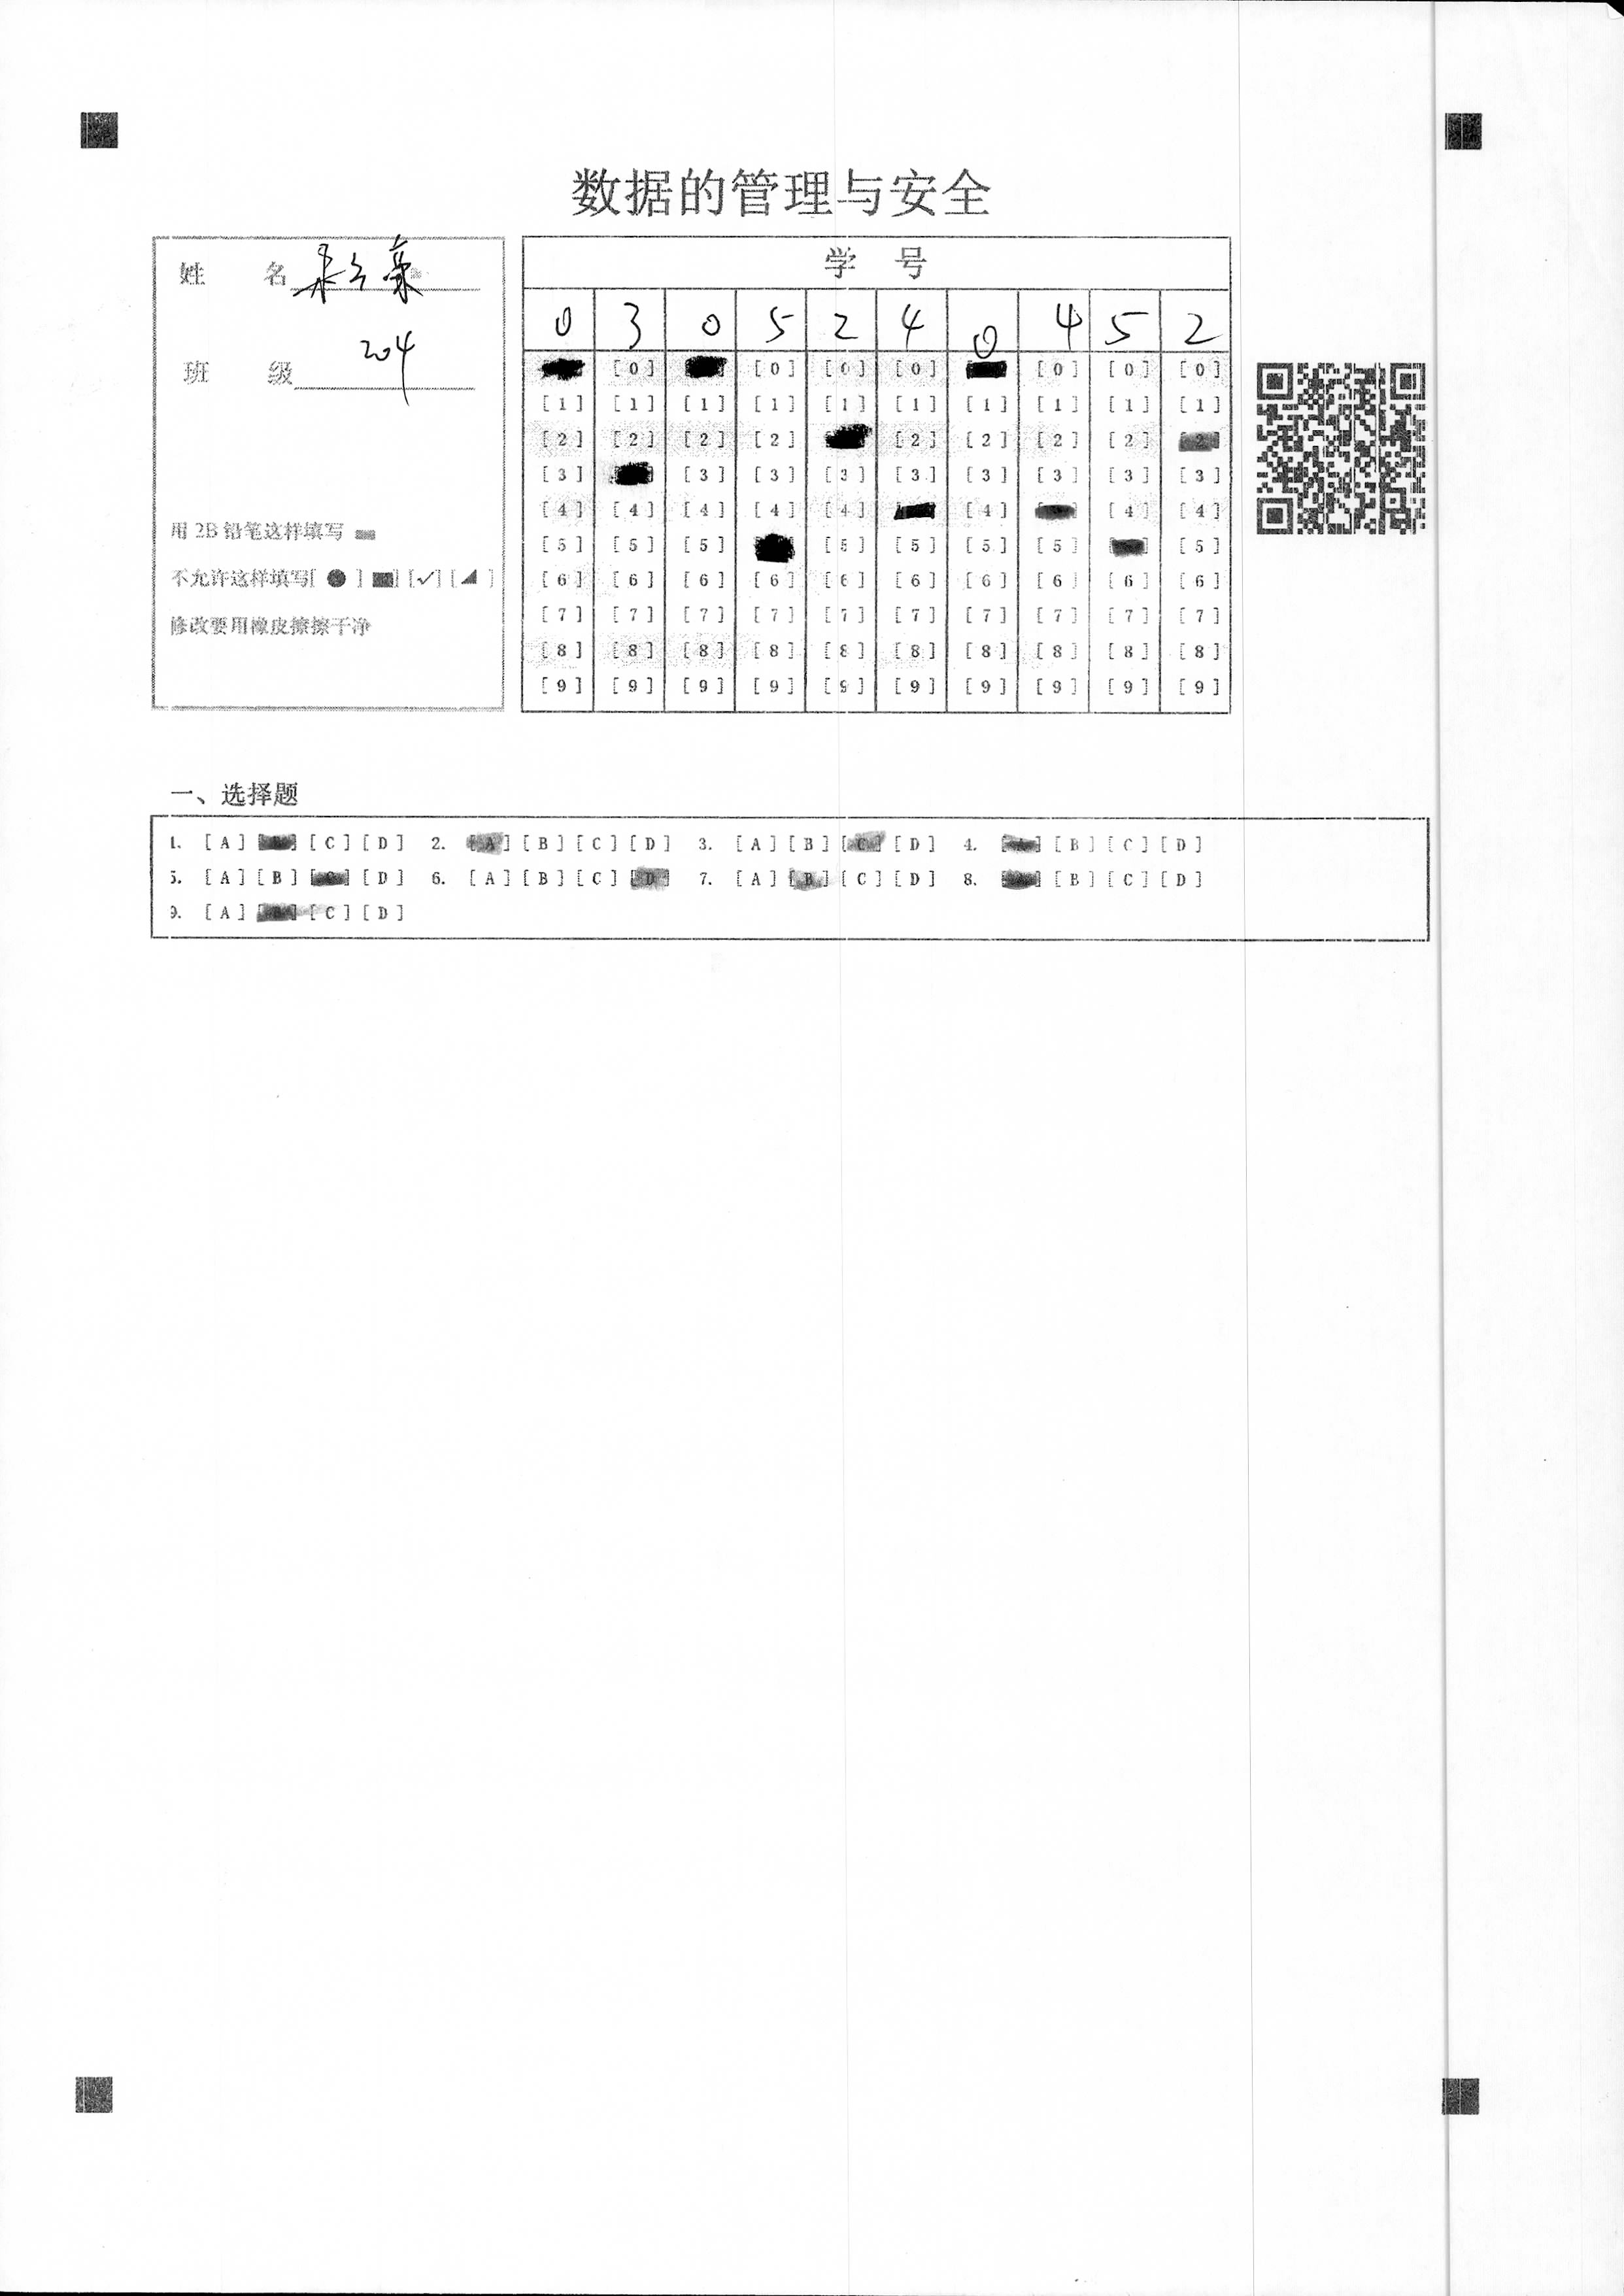 数据的管理与安全
姓 名
班 级 204
用 2B 铅笔这样填写
不允许这样填写[ ● ] [■] [✓] [◢ ]
修改要用橡皮擦擦干净
学 号
0 3 0 5 2 4 0 4 5 2
[0] [0] [0] [0] [0] [0] [0]
[1] [1] [1] [1] [1] [1] [1] [1] [1] [1]
[2] [2] [2] [2] [2] [2] [2] [2] [2]
[3] [3] [3] [3] [3] [3] [3] [3] [3]
[4] [4] [4] [4] [4] [4] [4] [4]
[5] [5] [5] [5] [5] [5] [5] [5]
[6] [6] [6] [6] [6] [6] [6] [6] [6] [6]
[7] [7] [7] [7] [7] [7] [7] [7] [7] [7]
[8] [8] [8] [8] [8] [8] [8] [8] [8] [8]
[9] [9] [9] [9] [9] [9] [9] [9] [9] [9]
一、选择题
1. [A] [B] [C] [D] 2. [A] [B] [C] [D] 3. [A] [B] [C] [D] 4. [A] [B] [C] [D]
5. [A] [B] [C] [D] 6. [A] [B] [C] [D] 7. [A] [B] [C] [D] 8. [A] [B] [C] [D]
9. [A] [B] [C] [D]